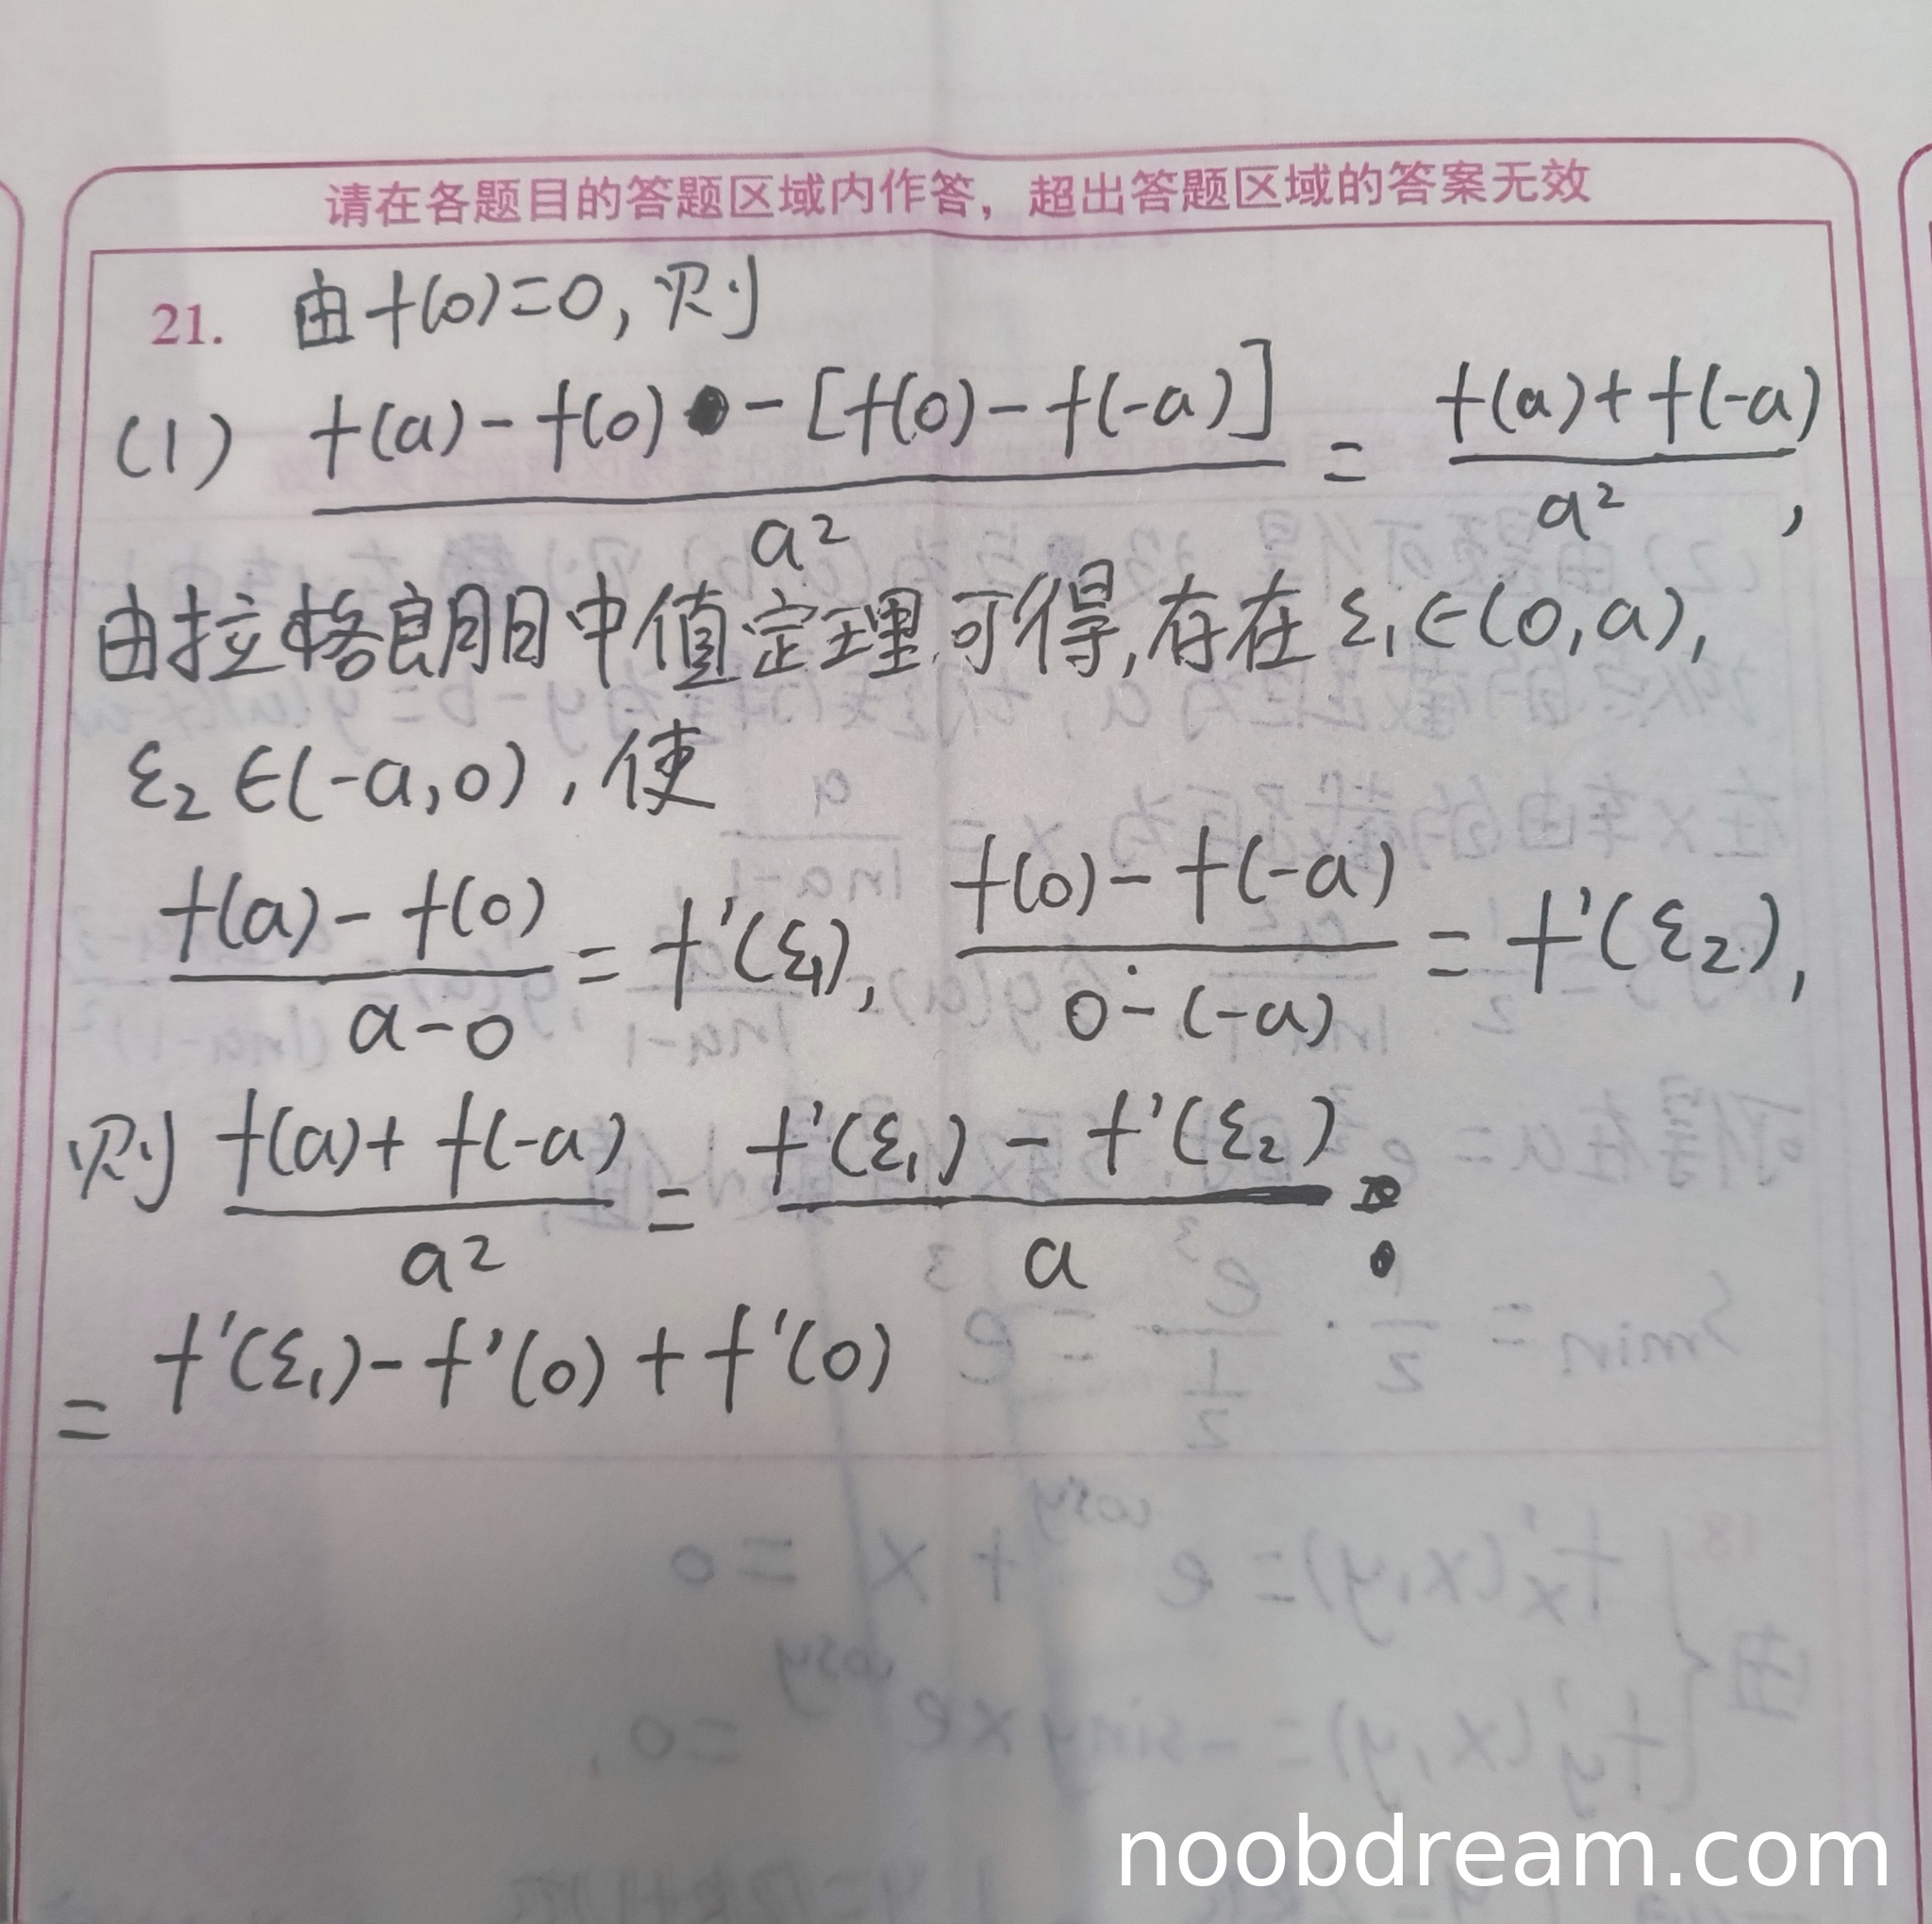 请在各题目的答题区域内作答，超出答题区域的答案无效
21. 由f(0)=0, 则
(1) \frac{f(a)-f(0)-[f(0)-f(-a)]}{a^2} = \frac{f(a)+f(-a)}{a^2},
由拉格朗日中值定理可得,存在ξ₁∈(0,a),
ξ₂∈(-a,0),使
\frac{f(a)-f(0)}{a-0} = f'(ξ₁), \frac{f(0)-f(-a)}{0-(-a)} = f'(ξ₂),
则 \frac{f(a)+f(-a)}{a^2} = \frac{f'(ξ₁)-f'(ξ₂)}{a}
= f'(ξ₁)-f'(0)+f'(0)
noobdream.com